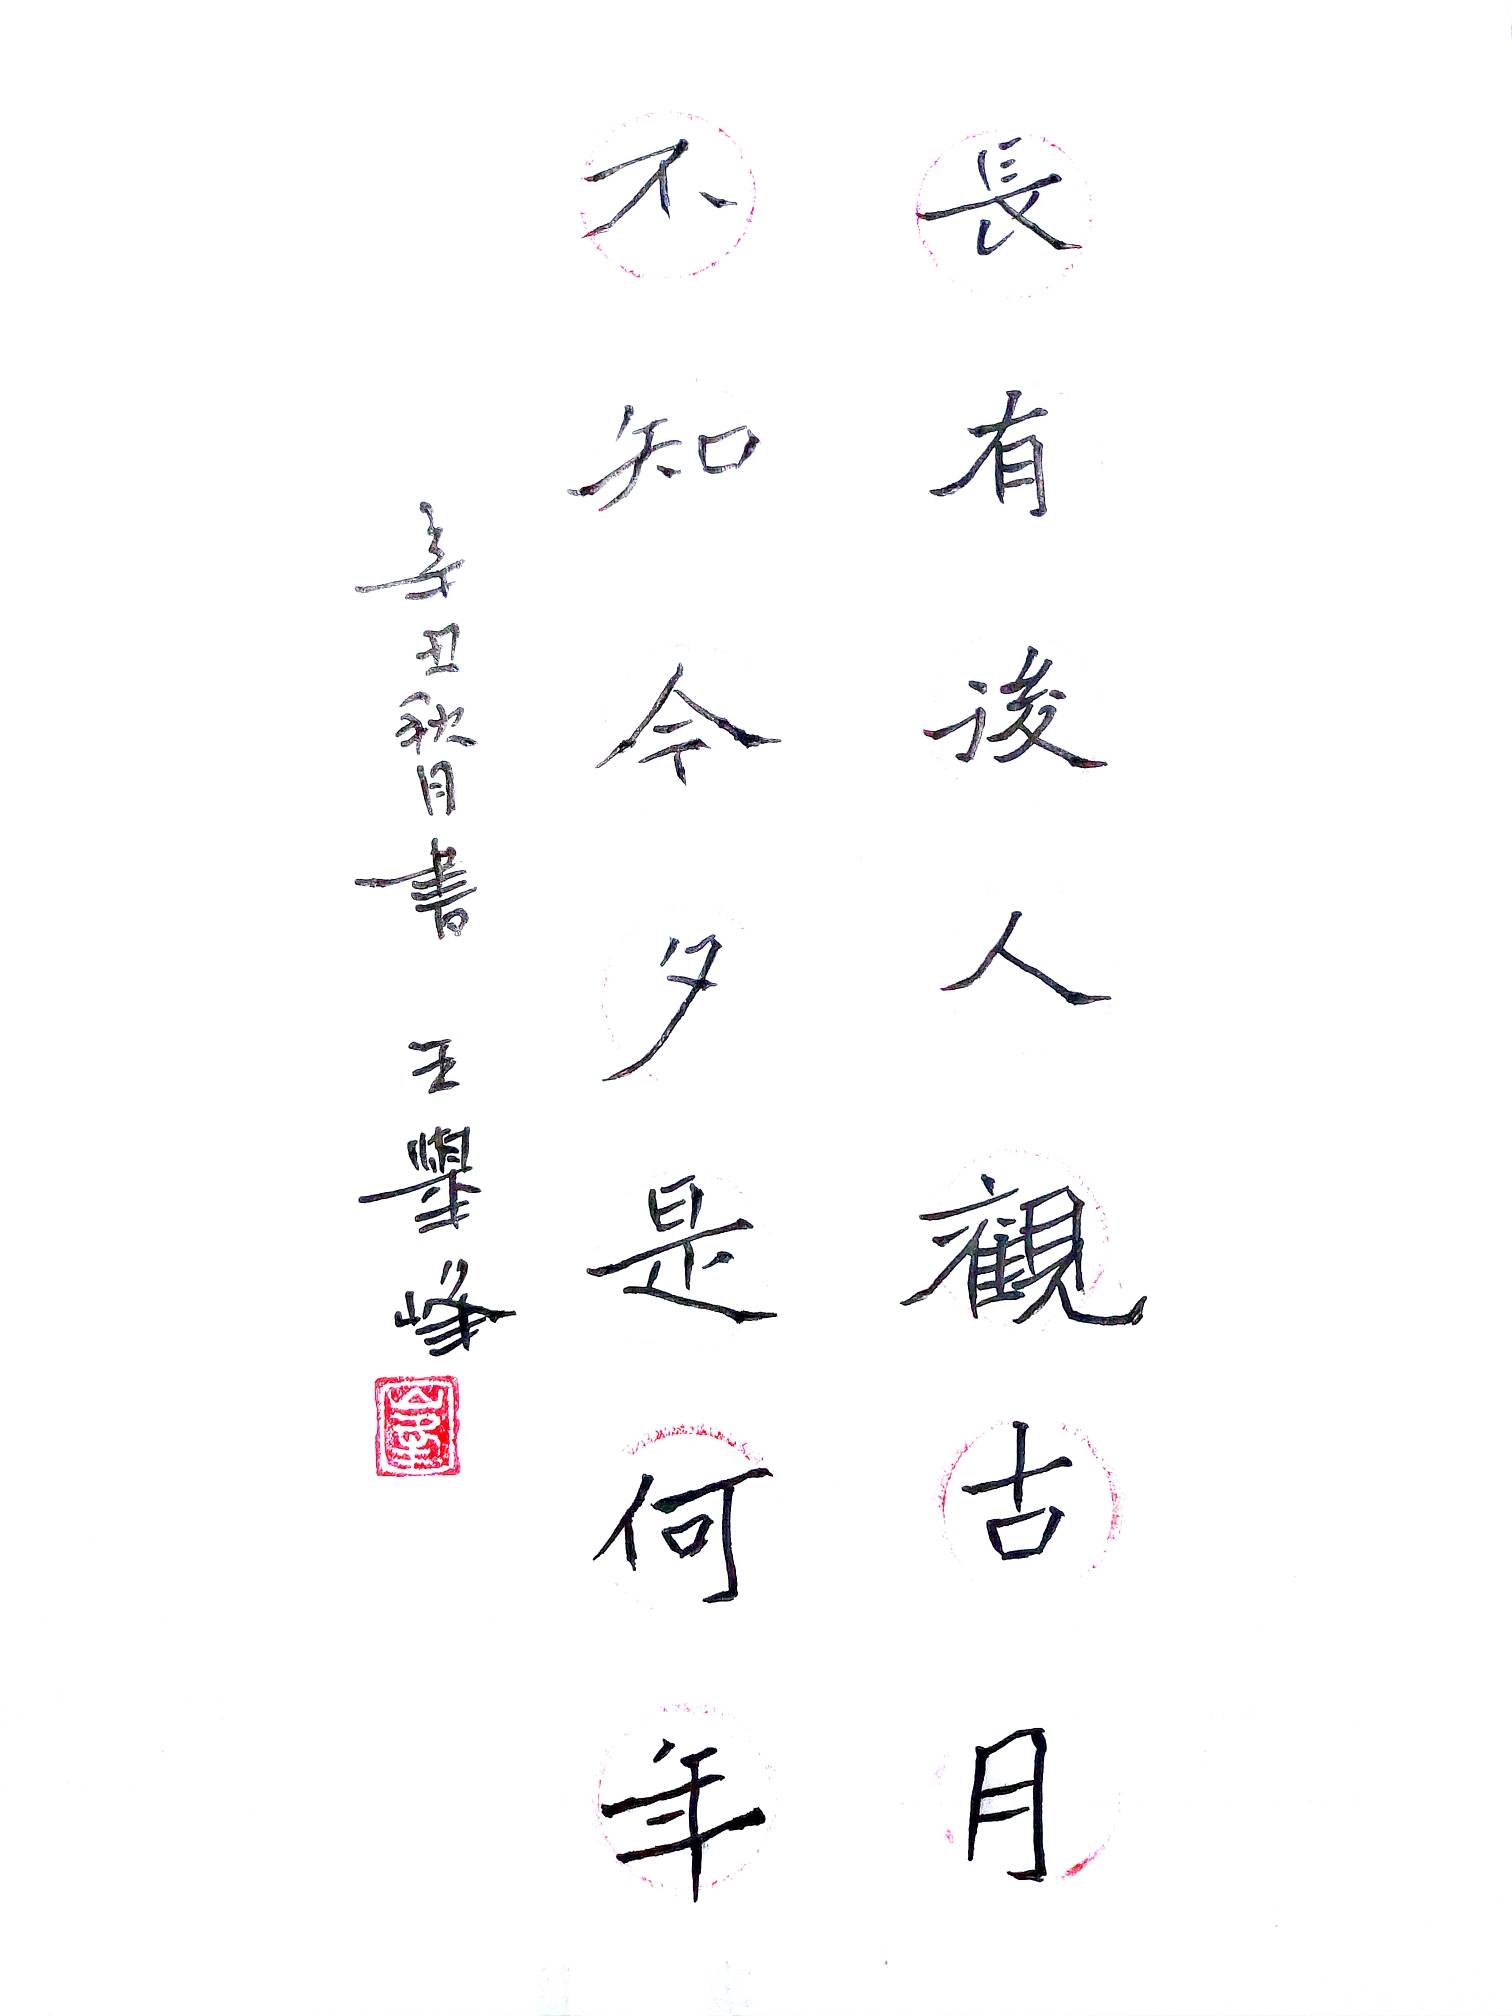 長有後人觀古月
不知今夕是何年
辛丑秋月書 王峰